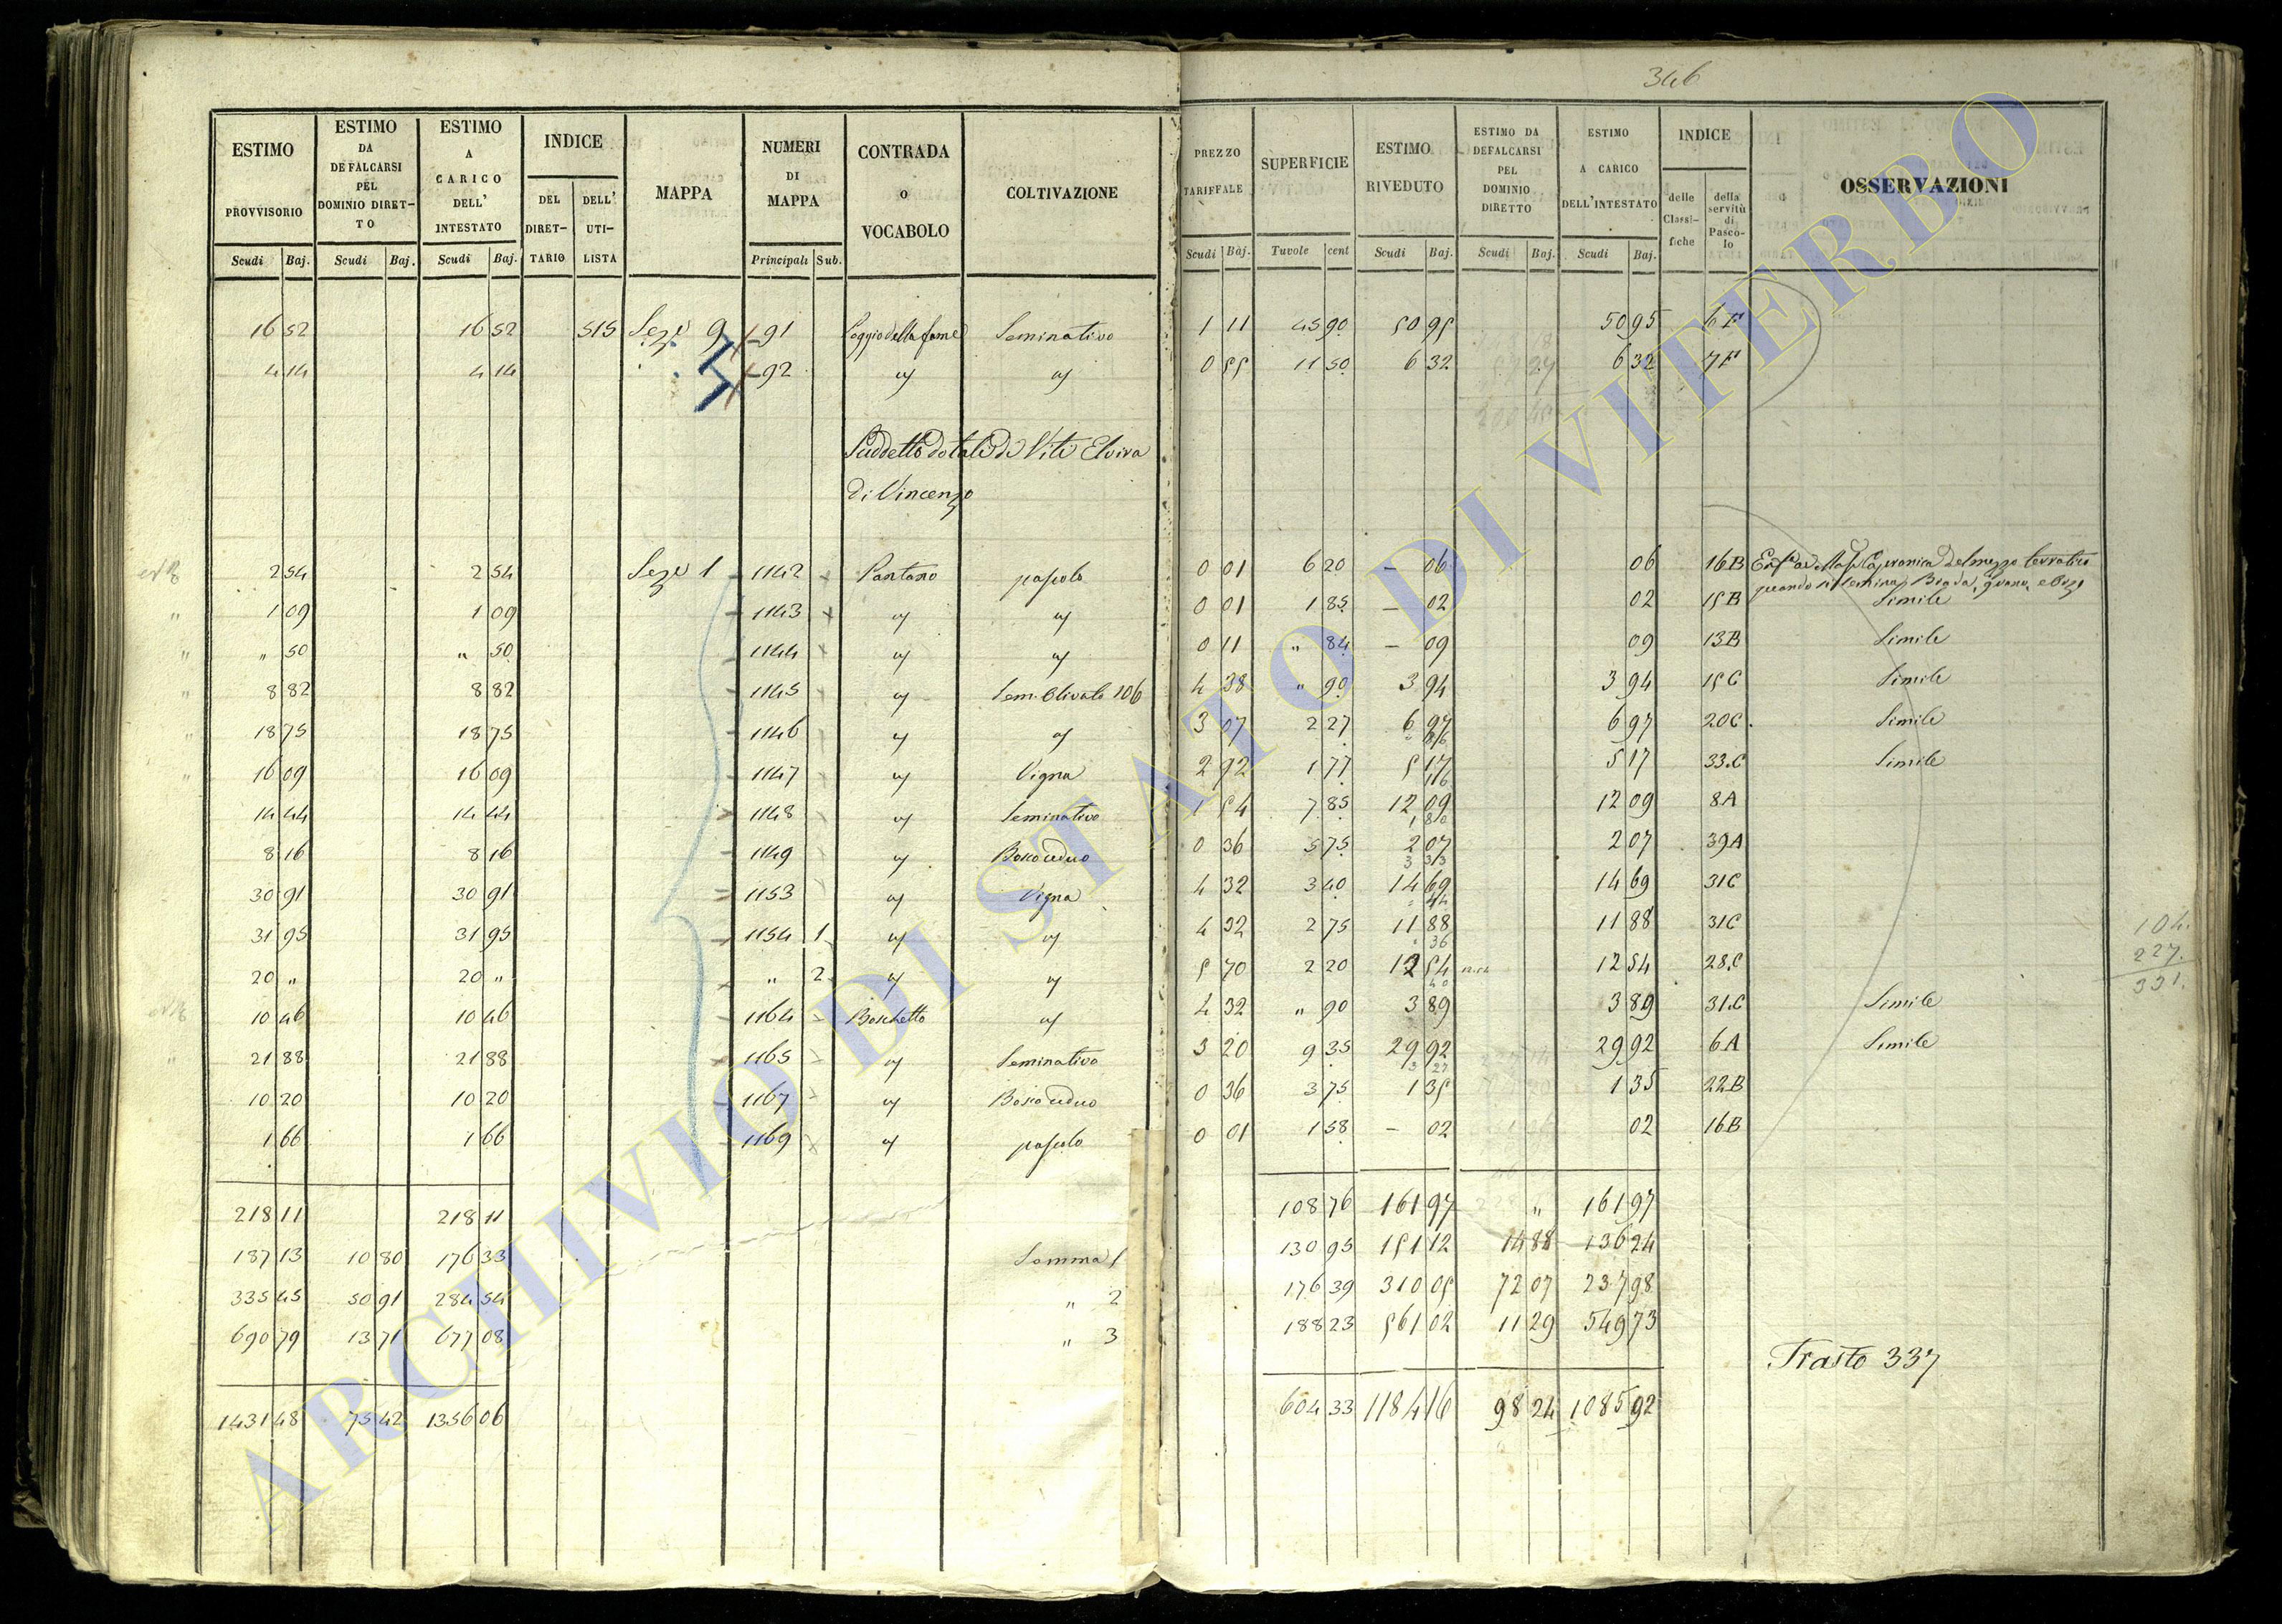 346
ESTIMO PROVVISORIO | ESTIMO DA DEFALCARSI PEL DOMINIO DIRETTO | ESTIMO A CARICO DELL' INTESTATO | INDICE DEL DIRETTARIO | DELL' UTILISTA | MAPPA | NUMERI DI MAPPA | CONTRADA o VOCABOLO | COLTIVAZIONE | PREZZO TARIFFALE | SUPERFICIE | ESTIMO RIVEDUTO | ESTIMO DA DEFALCARSI PEL DOMINIO DIRETTO | ESTIMO A CARICO DELL'INTESTATO | INDICE delle Classifiche | della servitù di Pascolo | OSSERVAZIONI
Scudi | Baj. | Scudi | Baj. | Scudi | Baj. | Principali | Sub. | Scudi | Baj. | Tavole | cent | Scudi | Baj. | Scudi | Baj. | Scudi | Baj.
16 52 | 16 52 | 515 | Seze 9 | 91 | Poggio della fame | Seminativo | 1 11 | 45 90 | 50 95 | 50 95 | 6 F
4 14 | 4 14 | 92 | " | " | 0 55 | 11 50 | 6 32 | 6 32 | 7 F
Suddetto dotale di Viti Elvira
di Vincenzo
2 54 | 2 54 | Seze 1 | 1142 | Pantano | pascolo | 0 01 | 6 20 | – 06 | 06 | 16 B | del mezzo terratico
quando si semina Biada, grano, e Orzo
1 09 | 1 09 | 1143 | " | " | 0 01 | 1 85 | – 02 | 02 | 15 B | Simile
" 50 | " 50 | 1144 | " | " | 0 11 | " 84 | – 09 | 09 | 13 B | Simile
8 82 | 8 82 | 1145 | " | Sem. Olivato 106 | 4 38 | " 90 | 3 94 | 3 94 | 15 C | Simile
18 75 | 18 75 | 1146 | " | " | 3 07 | 2 27 | 6 97 | 6 97 | 20 C | Simile
16 09 | 16 09 | 1147 | " | Vigna | 2 92 | 1 77 | 5 17 | 5 17 | 33 C | Simile
14 44 | 14 44 | 1148 | " | Seminativo | 1 54 | 7 85 | 12 09 | 12 09 | 8 A
8 16 | 8 16 | 1149 | " | Bosco ceduo | 0 36 | 5 75 | 2 07 | 2 07 | 39 A
30 91 | 30 91 | 1153 | " | Vigna | 4 32 | 3 40 | 14 69 | 14 69 | 31 C
31 95 | 31 95 | 1154 | 1 | " | " | 4 32 | 2 75 | 11 88 | 11 88 | 31 C
20 " | 20 " | " | 2 | " | " | 5 70 | 2 20 | 12 54 | 12 54 | 28 C
10 46 | 10 46 | 1164 | Boschetto | " | 4 32 | " 90 | 3 89 | 3 89 | 31 C | Simile
21 88 | 21 88 | 1165 | " | Seminativo | 3 20 | 9 35 | 29 92 | 29 92 | 6 A | Simile
10 20 | 10 20 | 1167 | " | Bosco ceduo | 0 36 | 3 75 | 1 35 | 1 35 | 22 B
1 66 | 1 66 | 1169 | " | pascolo | 0 01 | 1 58 | – 02 | 02 | 16 B
218 11 | 218 11 | 108 76 | 161 97 | " | 161 97
187 13 | 10 80 | 176 33 | Somma 1 | 130 95 | 151 12 | 14 88 | 136 24
335 45 | 50 91 | 284 54 | " 2 | 176 39 | 310 05 | 72 07 | 237 98
690 79 | 13 71 | 677 08 | " 3 | 188 23 | 561 02 | 11 29 | 549 73
Trasto 337
1431 48 | 75 42 | 1356 06 | 604 33 | 1184 16 | 98 24 | 1085 92
104.
227.
331.
ARCHIVIO DI STATO DI VITERBO